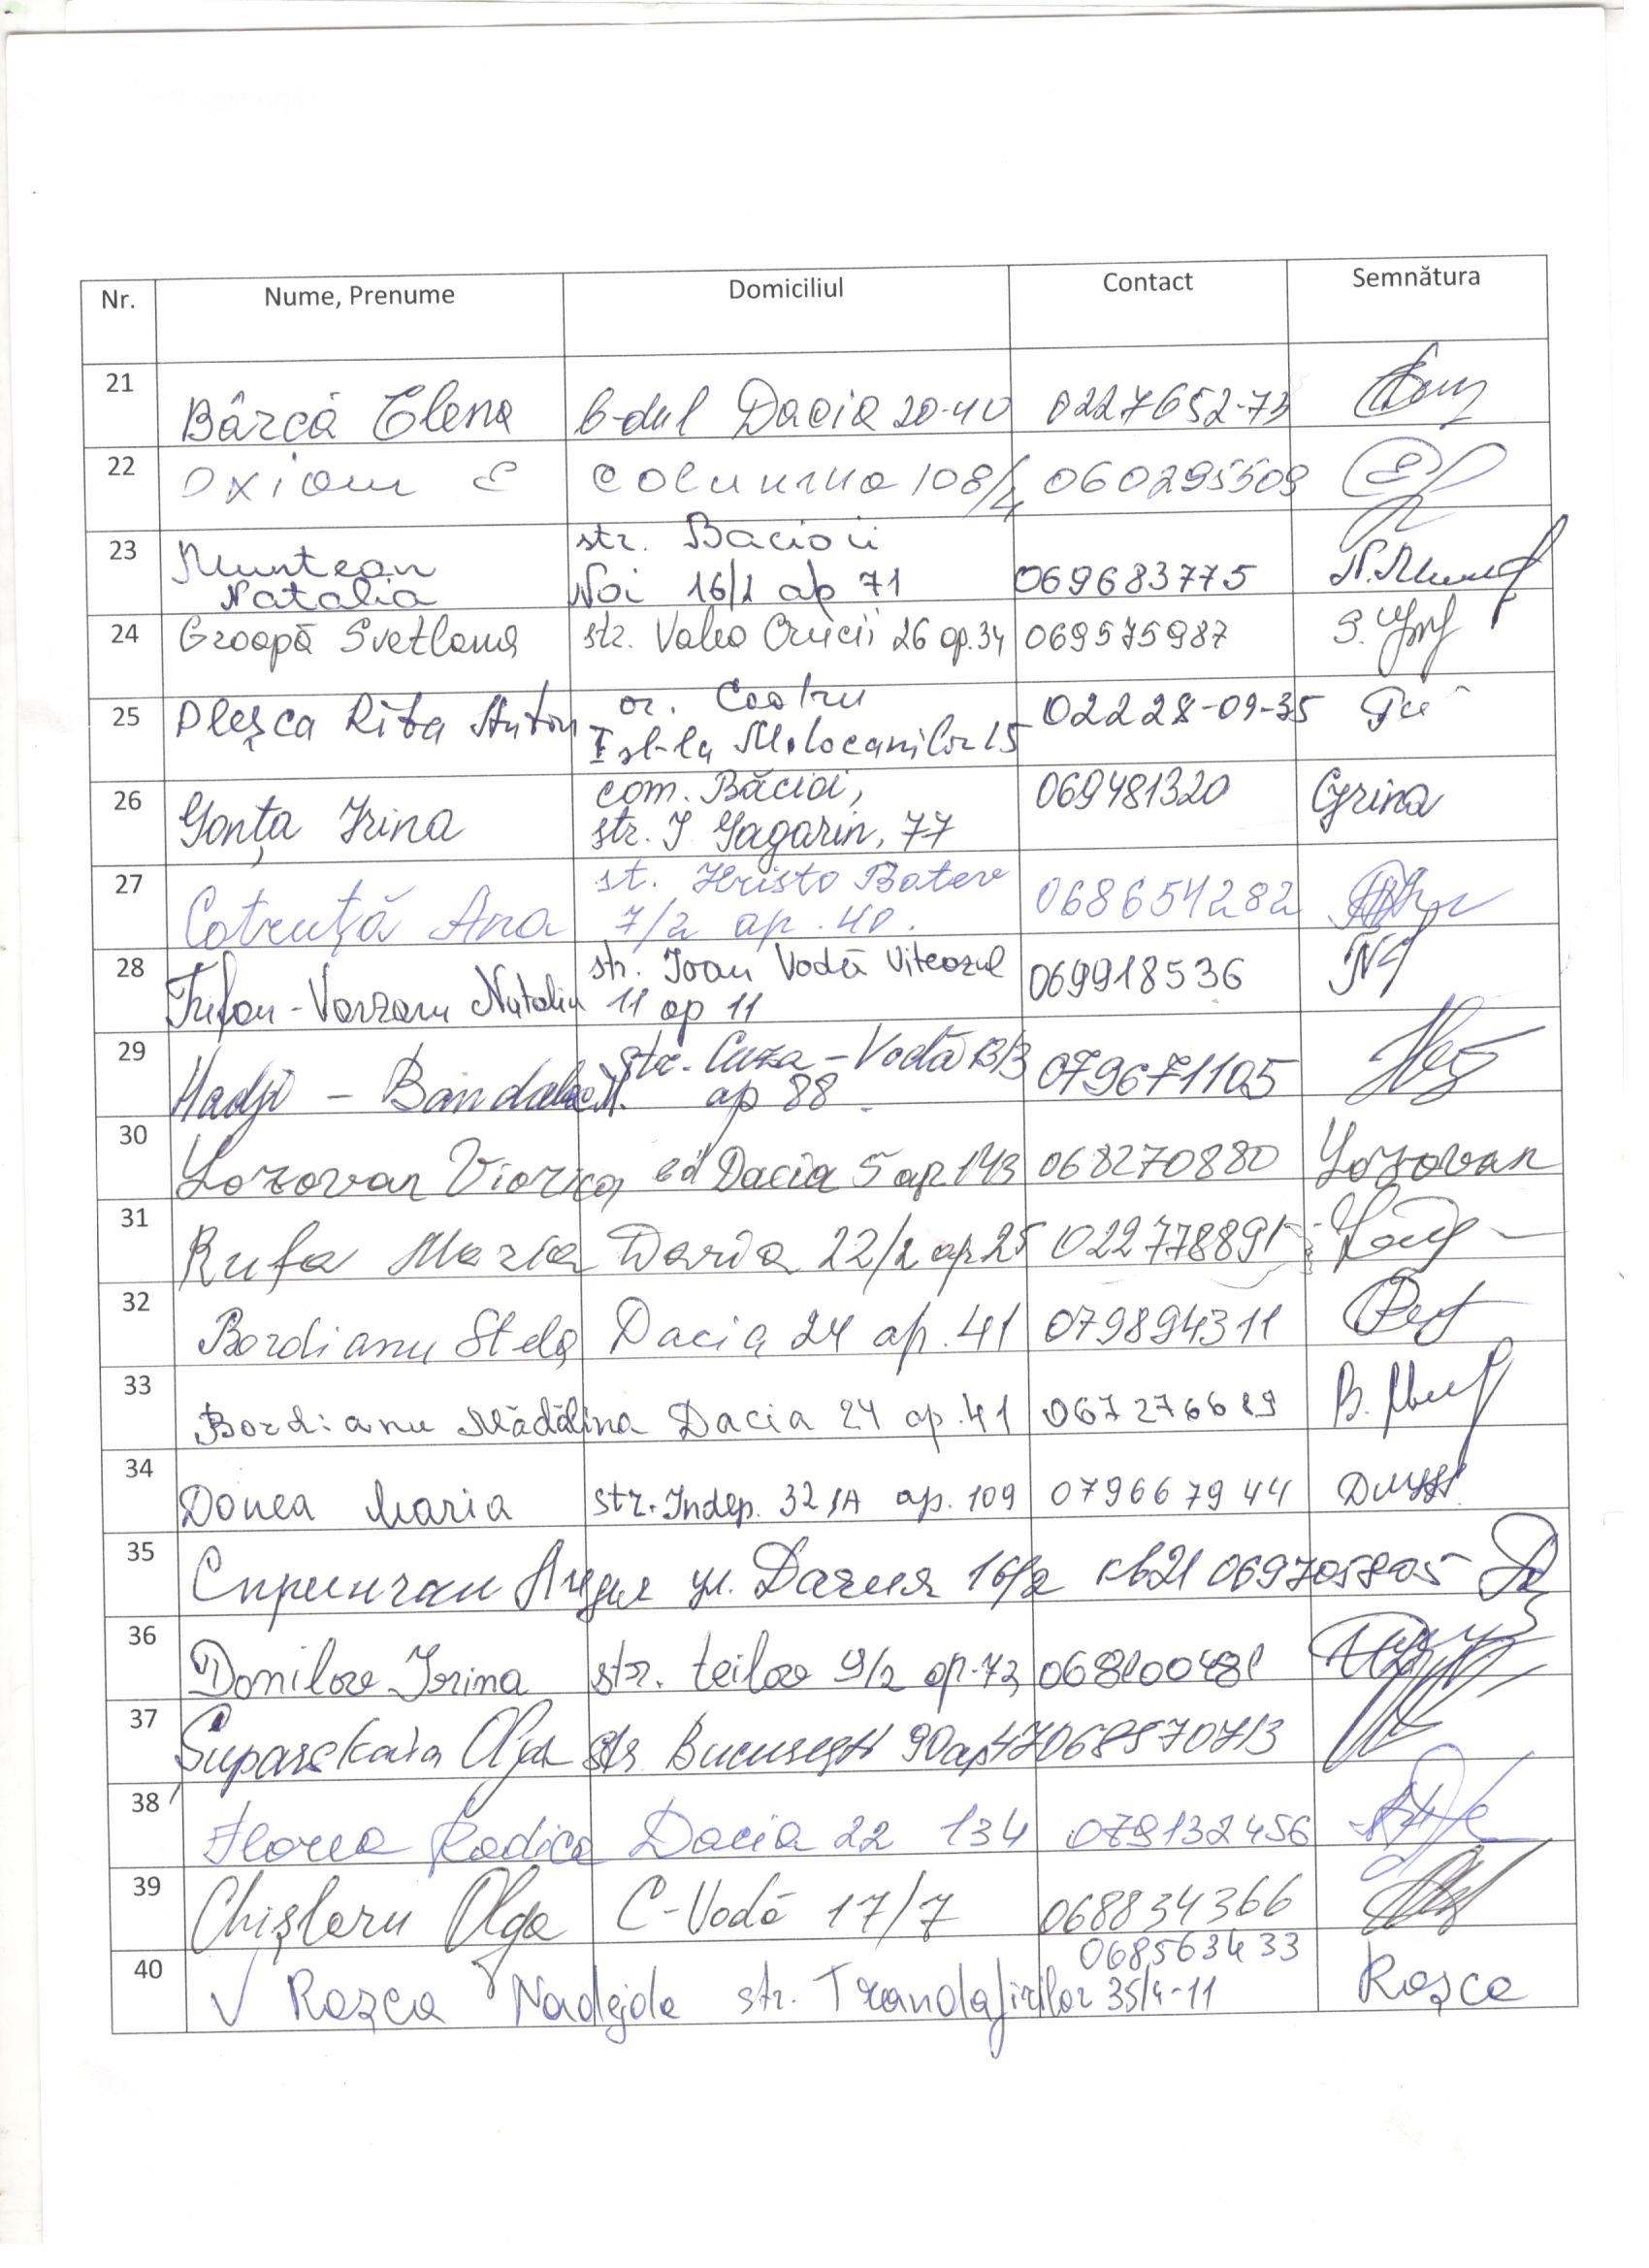 Nr. Nume, Prenume Domiciliul Contact Semnătura
21 Bârcă Elena b-dul Dacia 20-40 0227652-73
22 Oxiom E Columna 108/4 060295509
23 Muntean str. Bacioii
Natalia Noi 16/1 ap 71 069683775
24 Groapă Svetlana str. Valea Crucii 26 ap.34 069575987
25 Pleșca Rita Anton or. Codru
Molocanilor 15 02228-09-35
26 Gonța Irina com. Băcioi, 069481320
str. I. Gagarin, 77
27 Cotruță Ana st. Hristo Botev 068654282
7/2 ap. 40.
28 Trifan - Varzaru Natalia str. Ioan Vodă Viteazul 069918536
11 ap 11
29 Hadji - str. Cuza - Vodă 13/3 079671105
ap 88
30 Lozovan Viorica bd Dacia 5 ap 143 068270880 Lozovan
31 Rufa Maria Dacia 22/2 ap 25 022778891
32 Bordianu Stela Dacia 24 ap. 41 079894311
33 Bordianu Mădălina Dacia 24 ap. 41 067276689
34 Donea Maria str. Indep. ap. 109 079667944
35 ул. Дачия 16/2 кв21 069705805
36 Donilov Irina str. teilor 9/2 ap. 73 068100481
37 Olga str București 90 ap 47 068570713
38 Florea Rodica Dacia 22 134 079132456
39 Chișlaru Olga C-Vodă 17/7 068834366
068563433
40 Roșca Nadejda str. Trandafirilor 35/4-11 Roșca